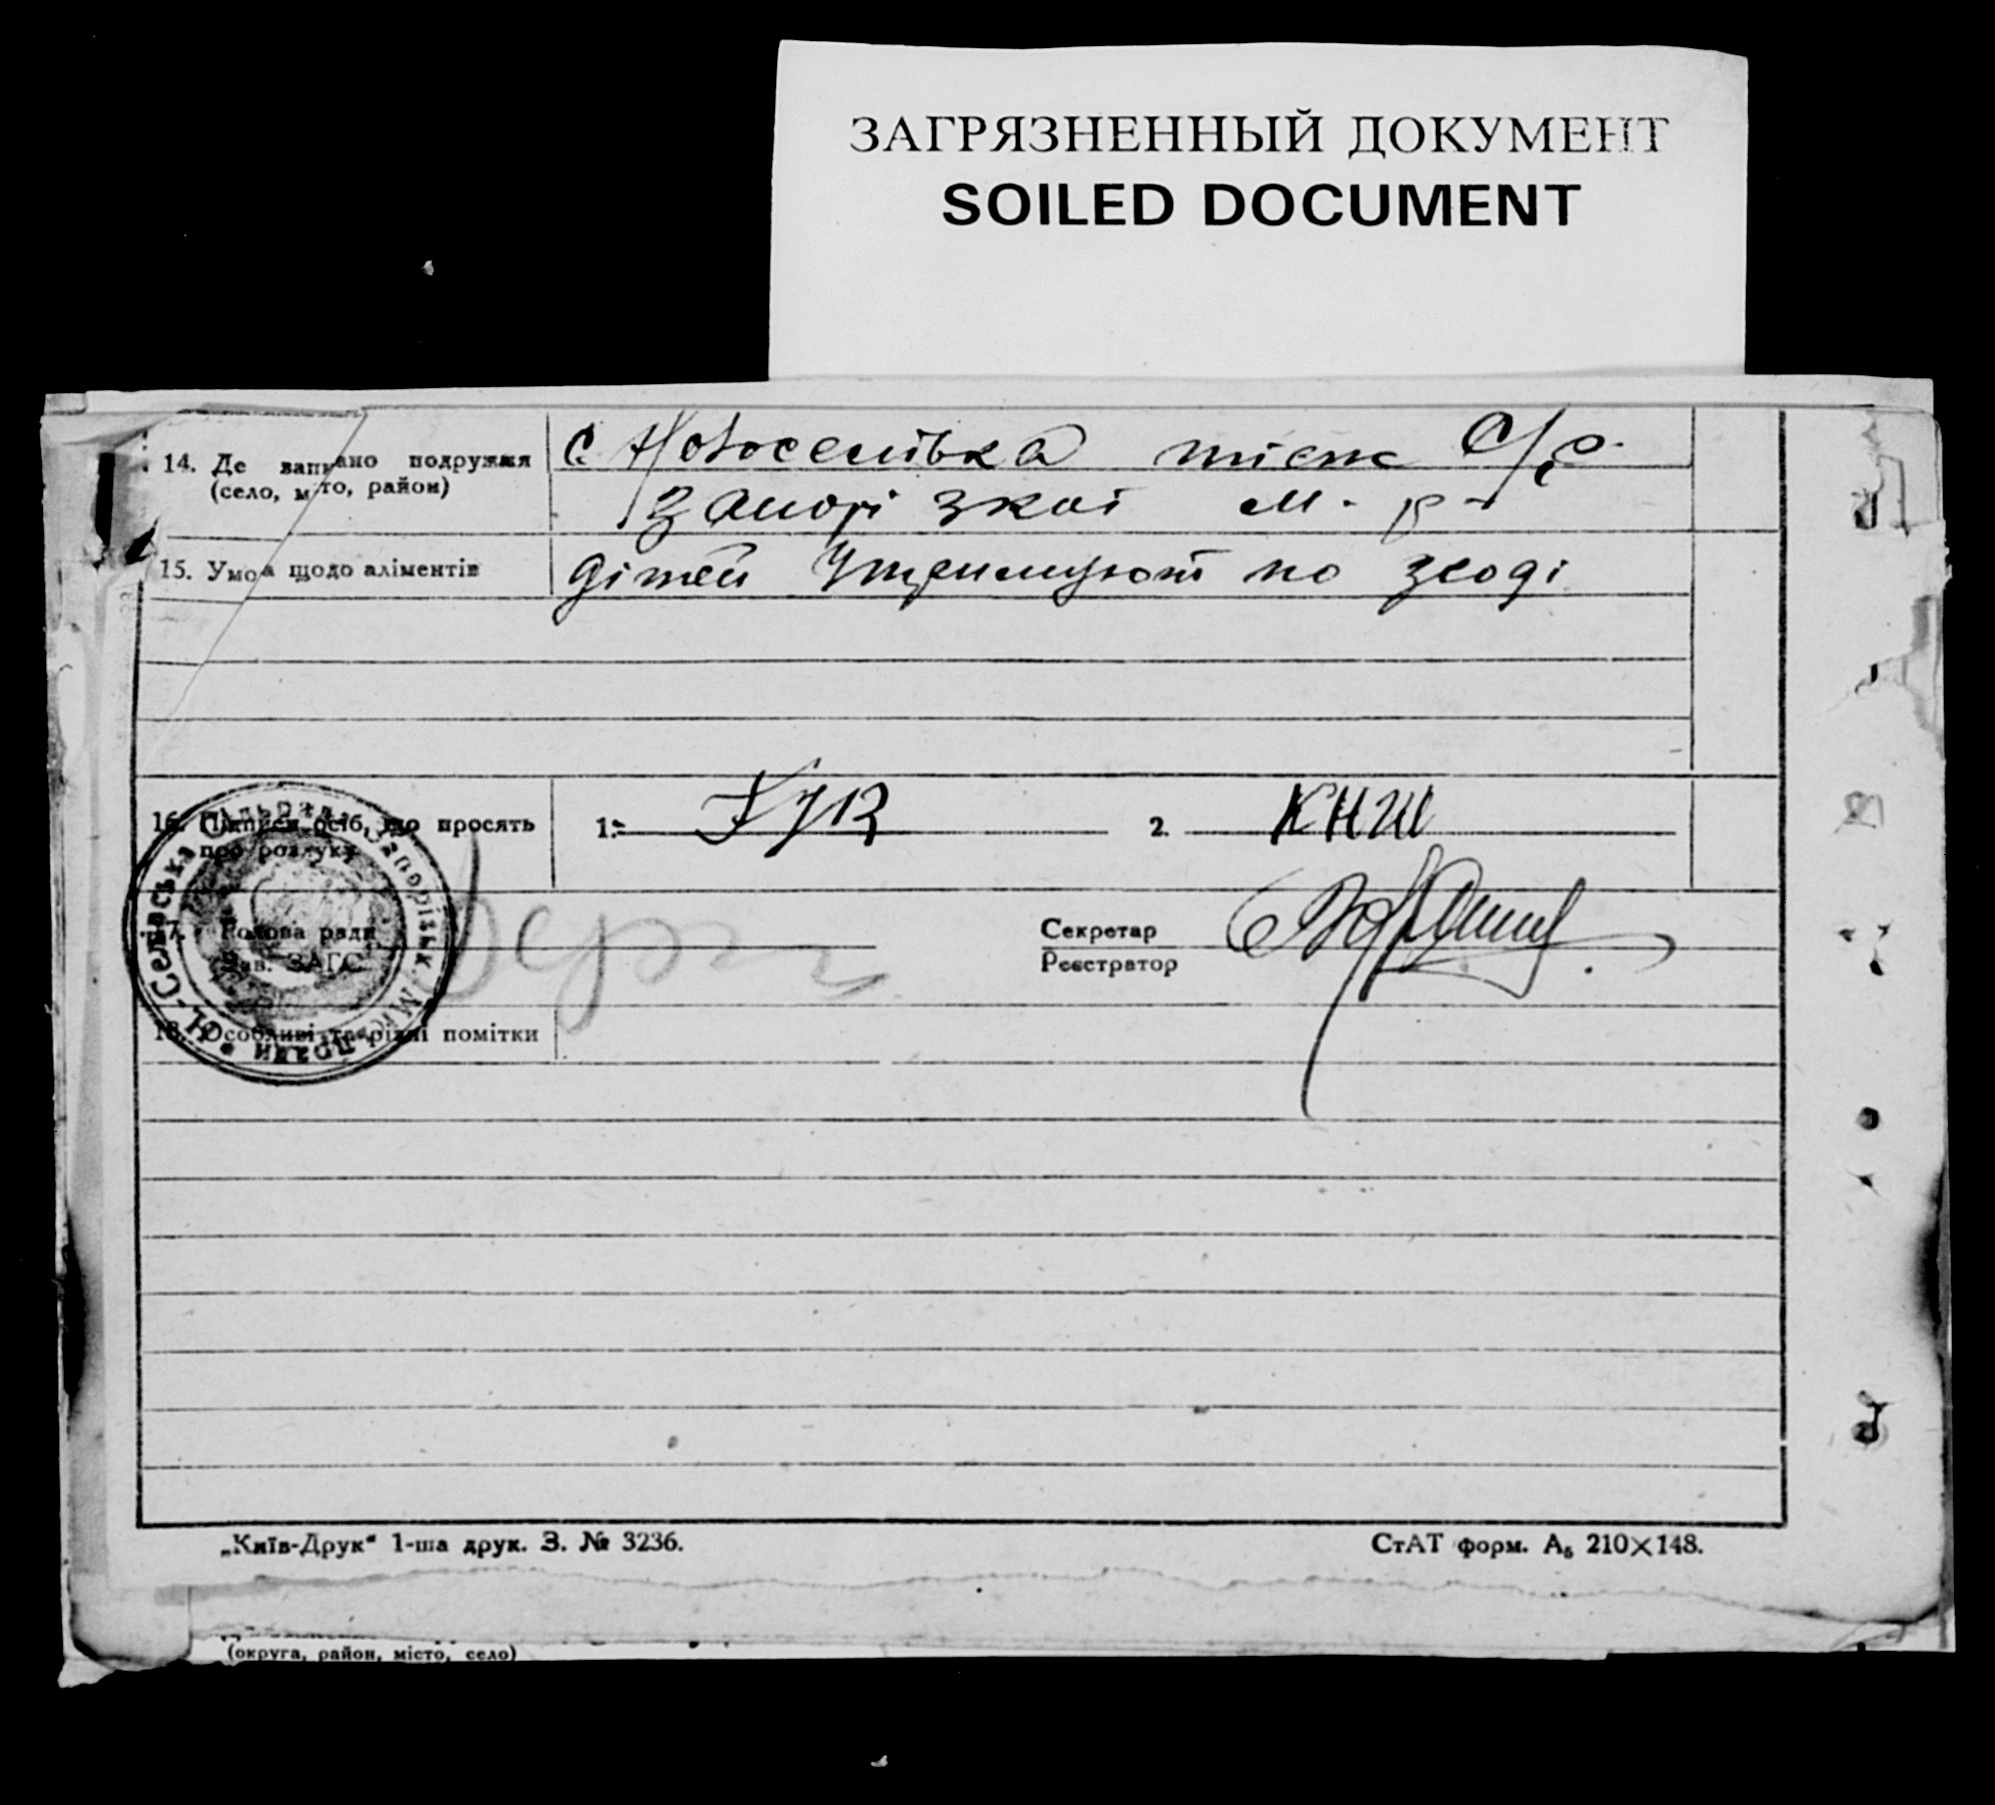 ЗАГРЯЗНЕННЫЙ ДОКУМЕНТ
SOILED DOCUMENT
14. Де записано подружжя
(село, місто, район)
с. Новоселівка тієж С/р.
Запорізкої м-р-
15. Умова щодо аліментів
дітей утримують по згоді
16. Підписи осіб, що просять
про розлуку
1.
2. КНИШ
17. Голова ради
Зав. ЗАГС
Секретар
Реєстратор
18. Особливі та різні помітки
„Київ-Друк“ 1-ша друк. З. № 3236.
СтАТ форм. А₅ 210×148.
(округа, район, місто, село)